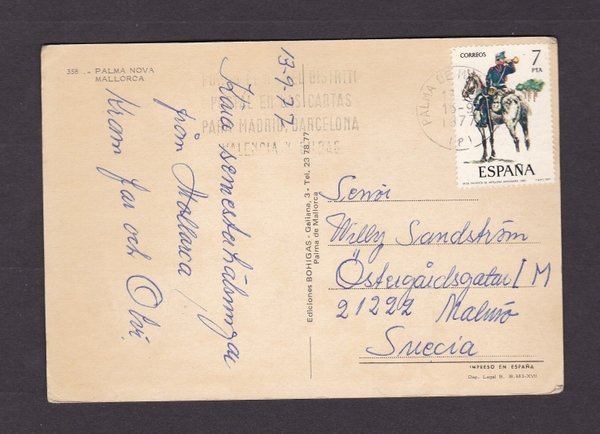 358 .- PALMA NOVA
MALLORCA
13-9-77
Kära semesterhälsningar
från Mallorca /
Kram Jan och Obi.
DISTRITO
POSTAL EN LAS CARTAS
PARA MADRID, BARCELONA
VALENCIA Y
PALMA DE
1977
Ediciones BOHIGAS - Galiana, 3 - Tel. 23 78 77
Palma de Mallorca
CORREOS
7
PTA
ESPAÑA
Senõr
Willy Sandström
Östergårdsgatan 1 M
21222 Malmö
Suecia
IMPRESO EN ESPAÑA
Dep. Legal B.